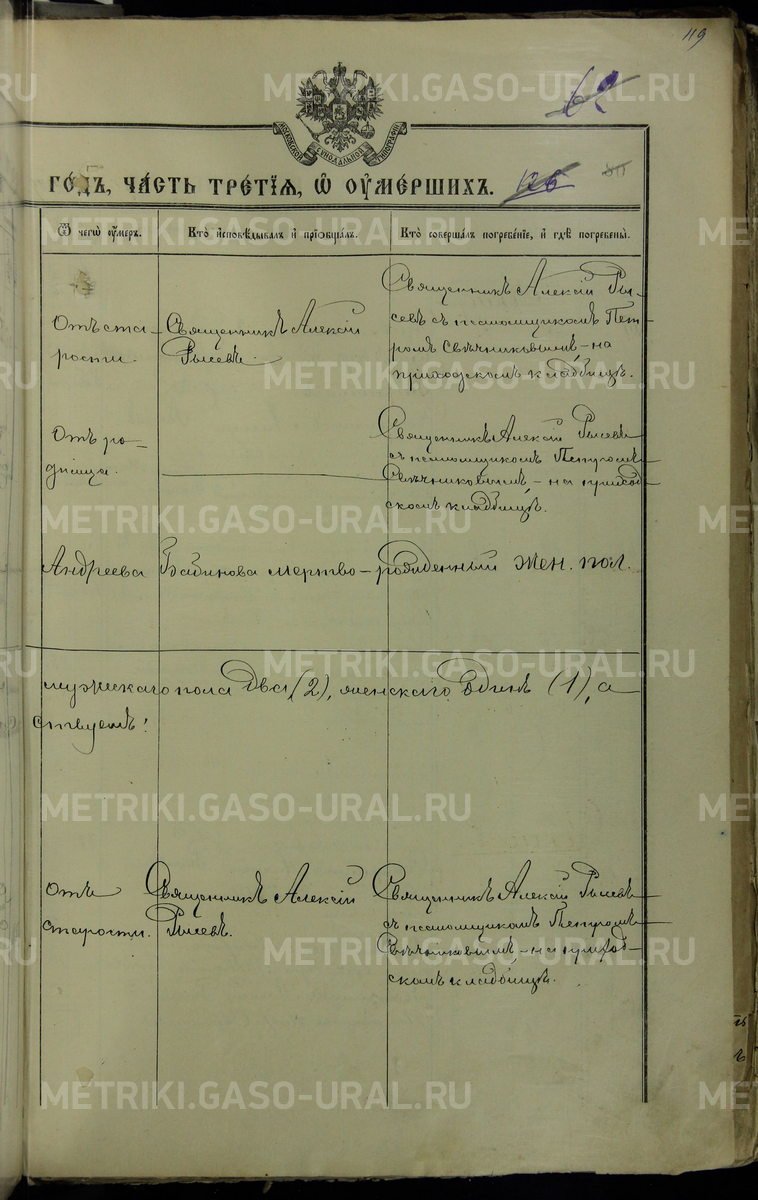 119
62
МОСКОВСКОЙ СѴНОДАЛЬНОЙ ТИПОГРАФІИ
ГО́ДЪ, ЧА́СТЬ ТРЕ́ТІѦ, Ѡ҆ ОУ҆МЕ́РШИХЪ.
126
Ѿ чегѡ̀ оу҆́меръ.
Кто̀ и҆сповѣ́дывалъ и҆ прїѡбща́лъ.
Кто̀ соверша́лъ погребе́нїе, и҆ гдѣ̀ погребены̀.
Отъ ста-
рости.
Священникъ Алексій
Рысевъ.
Священникъ Алексій Ры-
севъ съ псаломщикомъ Пет-
ромъ Свѣчниковымъ, – на
приходскомъ кладбищѣ.
Отъ ро-
димца.
Священникъ Алексій Рысевъ
съ псаломщикомъ Петромъ
Свѣчниковымъ, – на приход-
скомъ кладбищѣ.
Андреева Бабинова мертво-рожденный жен. пол.
мужескаго пола Два (2), женскаго Одинъ (1), а
ствуетъ:
Отъ
старости.
Священникъ Алексій
Рысевъ.
Священникъ Алексій Рысевъ
съ псаломщикомъ Петромъ
Свѣчниковымъ, – на приход-
скомъ кладбищѣ.
METRIKI.GASO-URAL.RU